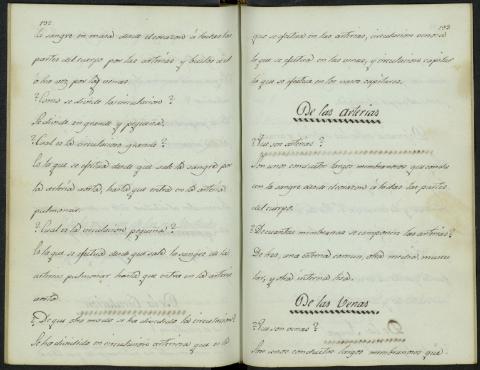 132
la sangre en masa desde el corazon á todas las
partes del cuerpo por las arterias y vuelve al
otra vez por las venas.
¿Como se divide la circulacion?
Se divide en grande y pequeña.
¿Cual es la circulacion grande?
Es la que se efectua desde que sale la sangre por
la arteria aorta, hasta que entra en la arteria
pulmonar.
¿Cual es la circulacion pequeña?
Es la que se efectua desde que sale la sangre de la
arteria pulmonar hasta que entra en la arteria
aorta.
¿De que otro modo se ha dividido la circulacion?
Se ha dividido en circulacion arteriosa que es la
133
que se efectua en las arterias, circulacion venosa
la que se efectua en las venas, y circulacion capilar
la que se efectua en los vasos capilares.
De las Arterias
¿Que son arterias?
Son unos conductos largos membranosos que
la sangre desde el corazon á todas las partes
del cuerpo.
¿De cuantas membranas se componen las arterias?
De tres, una esterna comun, otra media, muscu
lar, y otra interna
De las Venas
¿Que son venas?
Son unos conductos largos membranosos que